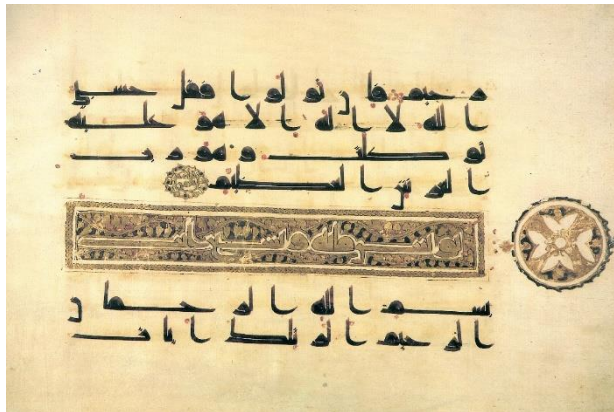 رحيم فان تولوا فقل حسبي
الله لا اله الا هو عليه
توكلت وهو رب
العرش العظيم
بسم الله الرحمن
الرحيم الر تلك ايات